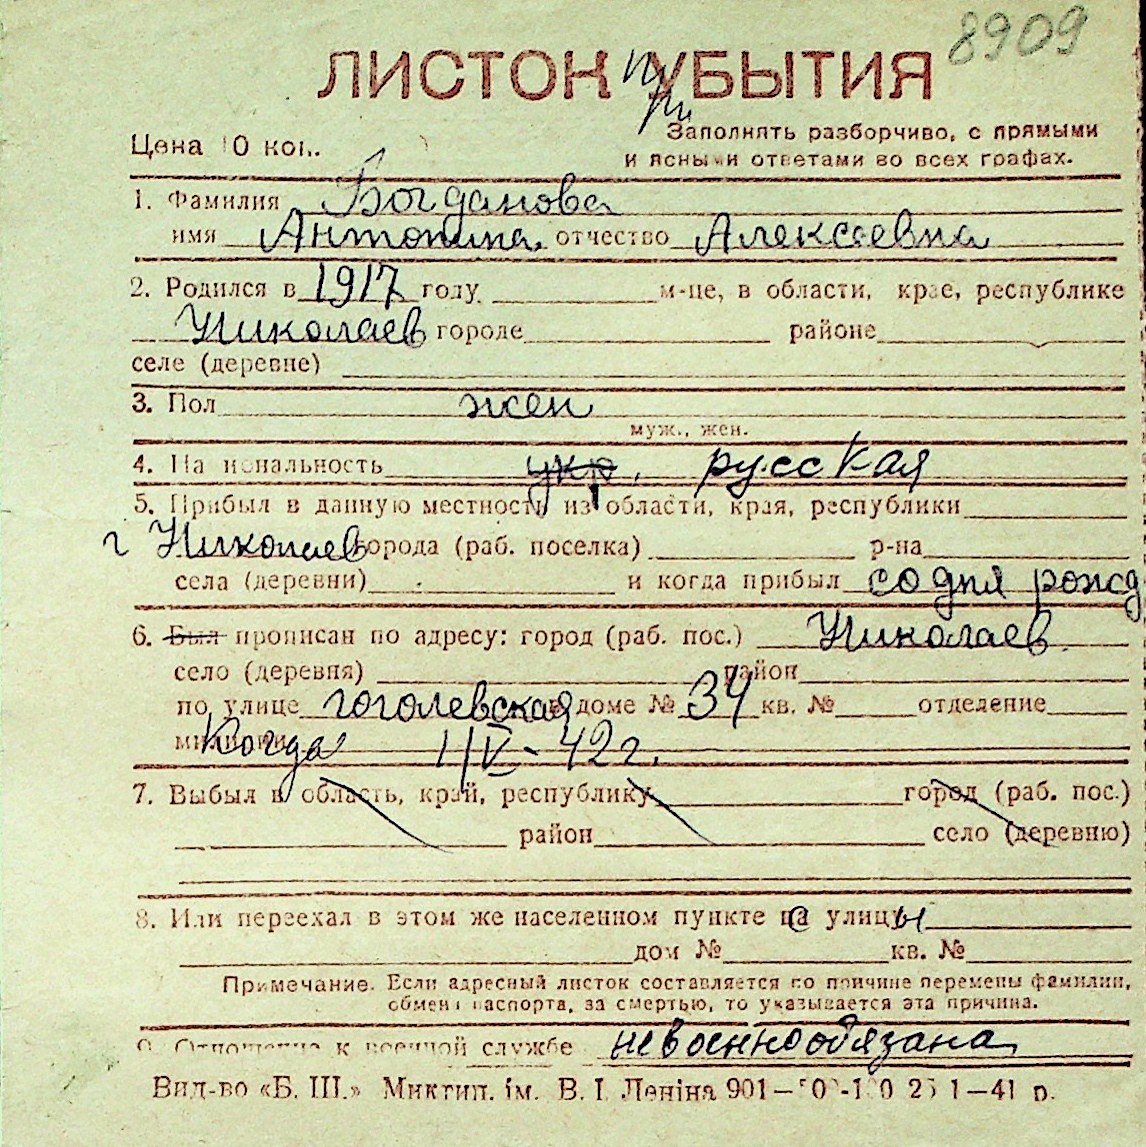 8909
ЛИСТОК при УБЫТИЯ
Цена 10 коп.
Заполнять разборчиво, с прямыми
и ясными ответами во всех графах.
1. Фамилия Богданова
имя Антонина отчество Алексеевна
2. Родился в 1917 году м-це, в области, крае, республике
Николаев городе районе
селе (деревне)
3. Пол жен
муж., жен.
4. Национальность укр. русская
5. Прибыл в данную местность из области, края, республики
г Николаев города (раб. поселка) р-на
села (деревни) и когда прибыл со дня рожд
6. Был прописан по адресу: город (раб. пос.) Николаев
село (деревня) район
по улице гоголевская доме № 34 кв. № отделение
милиции Когда 1/V-42 г.
7. Выбыл в область, край, республику город (раб. пос.)
район село (деревню)
8. Или переехал в этом же населенном пункте с улицы
дом № кв. №
Примечание. Если адресный листок составляется по причине перемены фамилии,
обмена паспорта, за смертью, то указывается эта причина.
9. Отношение к военной службе невоеннообязана
Вид-во «Б. Ш.» Миктип. ім. В. І. Леніна 901 1—41 р.